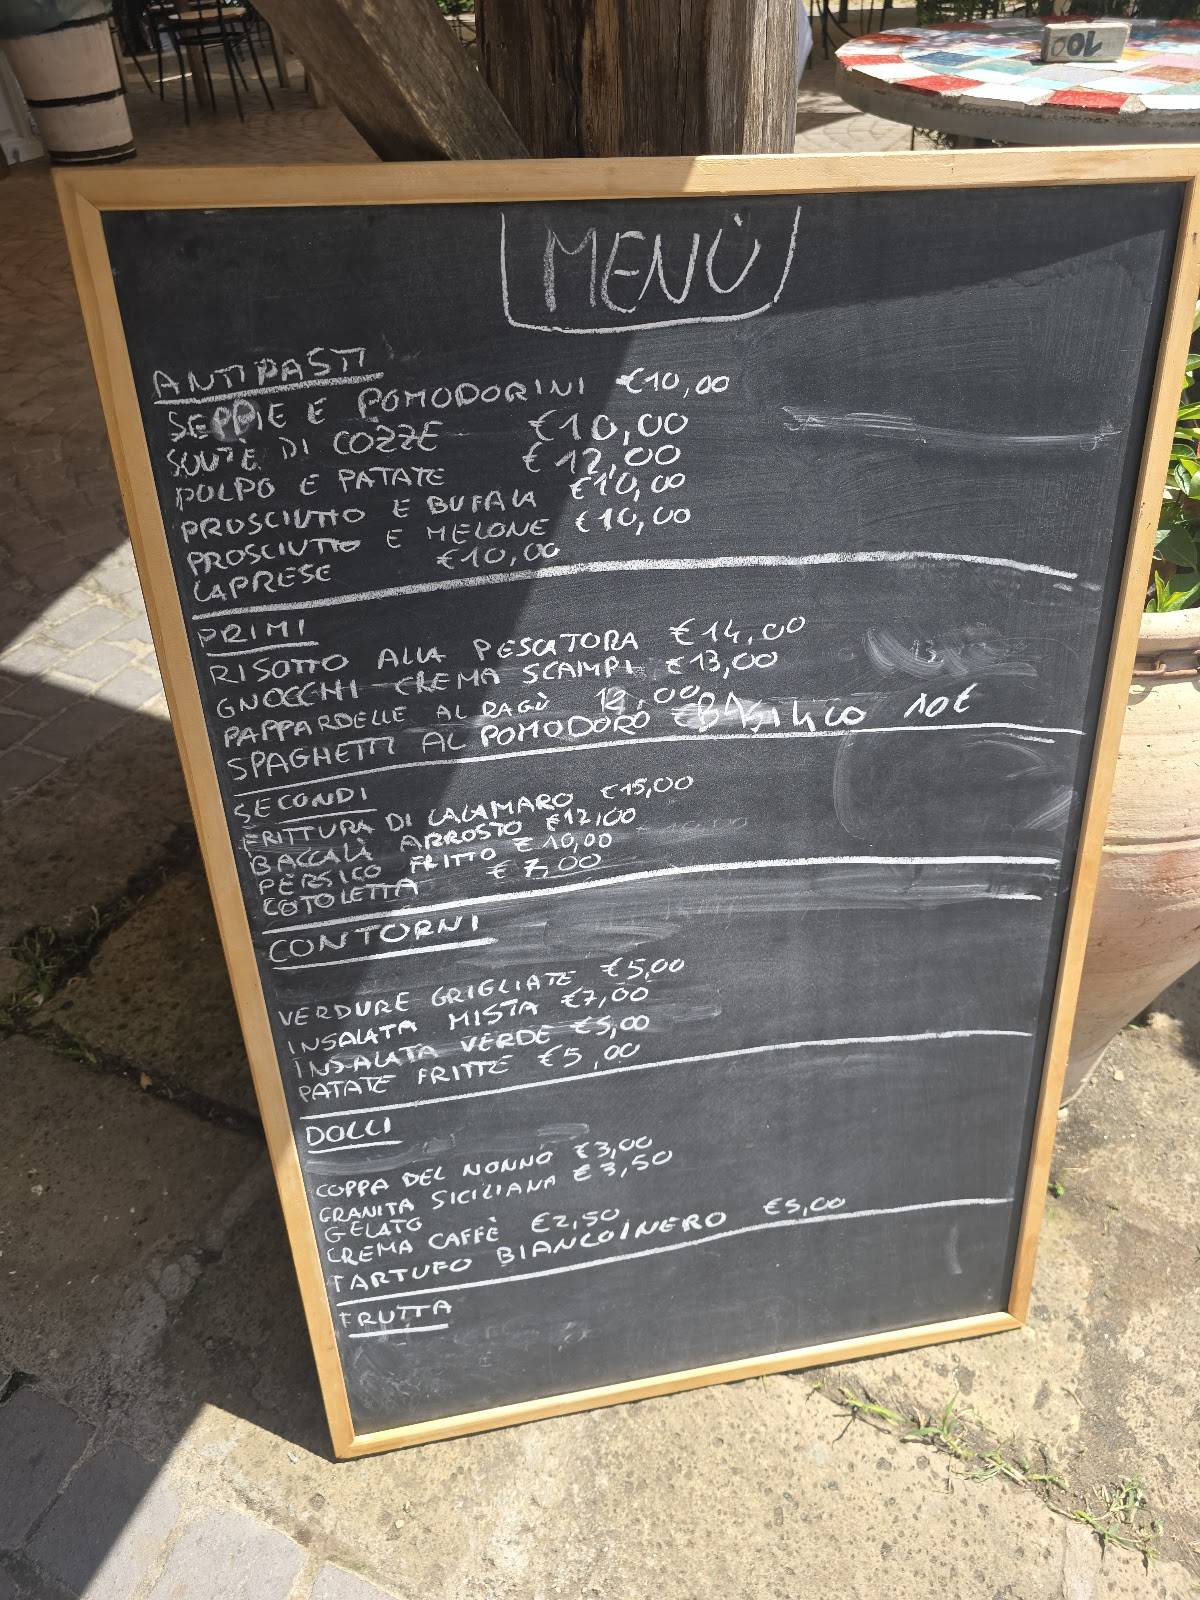 MENÙ
ANTIPASTI
SEPPIE E POMODORINI €10,00
SOUTÈ DI COZZE €10,00
POLPO E PATATE €12,00
PROSCIUTTO E BUFALA €10,00
PROSCIUTTO E MELONE €10,00
CAPRESE €10,00
PRIMI
RISOTTO ALLA PESCATORA €14,00
GNOCCHI CREMA SCAMPI €13,00
PAPPARDELLE AL RAGÙ 12,00
SPAGHETTI AL POMODORO E BASILICO 10€
SECONDI
FRITTURA DI CALAMARO €15,00
BACCALÀ ARROSTO €12,00
PERSICO FRITTO €10,00
COTOLETTA €7,00
CONTORNI
VERDURE GRIGLIATE €5,00
INSALATA MISTA €7,00
INSALATA VERDE €5,00
PATATE FRITTE €5,00
DOLCI
COPPA DEL NONNO €3,00
GRANITA SICILIANA €3,50
GELATO
CREMA CAFFÈ €2,50
TARTUFO BIANCO/NERO €5,00
FRUTTA